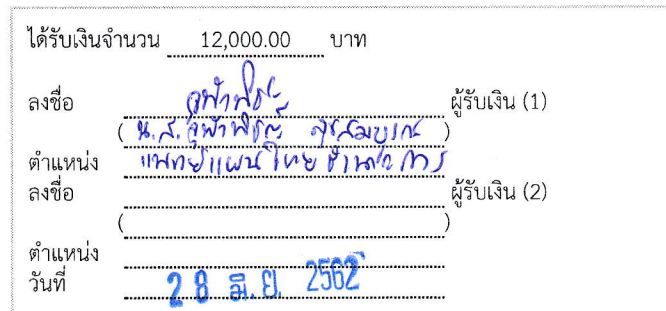 ได้รับเงินจำนวน 12,000.00 บาท
ลงชื่อ จุฬาพิรุณ ผู้รับเงิน (1)
( น.ส. )
ตำแหน่ง แพทย์แผนไทยชำนาญการ
ลงชื่อ ผู้รับเงิน (2)
( )
ตำแหน่ง
วันที่ 28 มิ.ย. 2562